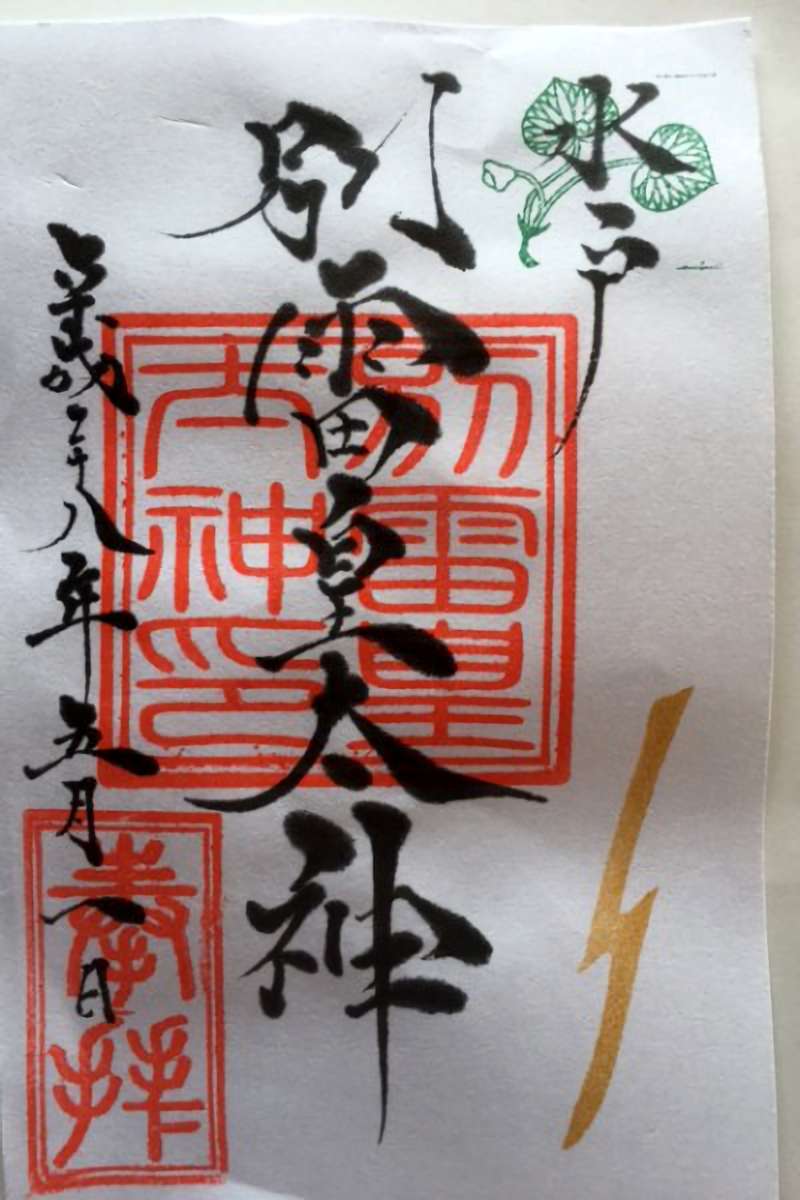 水戸
別雷皇太神
平成二十八年五月一日
別雷皇
大神印
奉拝